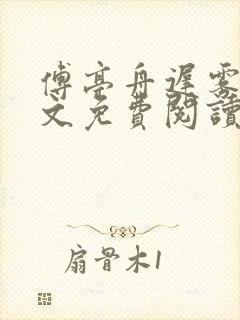 傅亭舟遲霧
文免費閱讀
扇骨木1